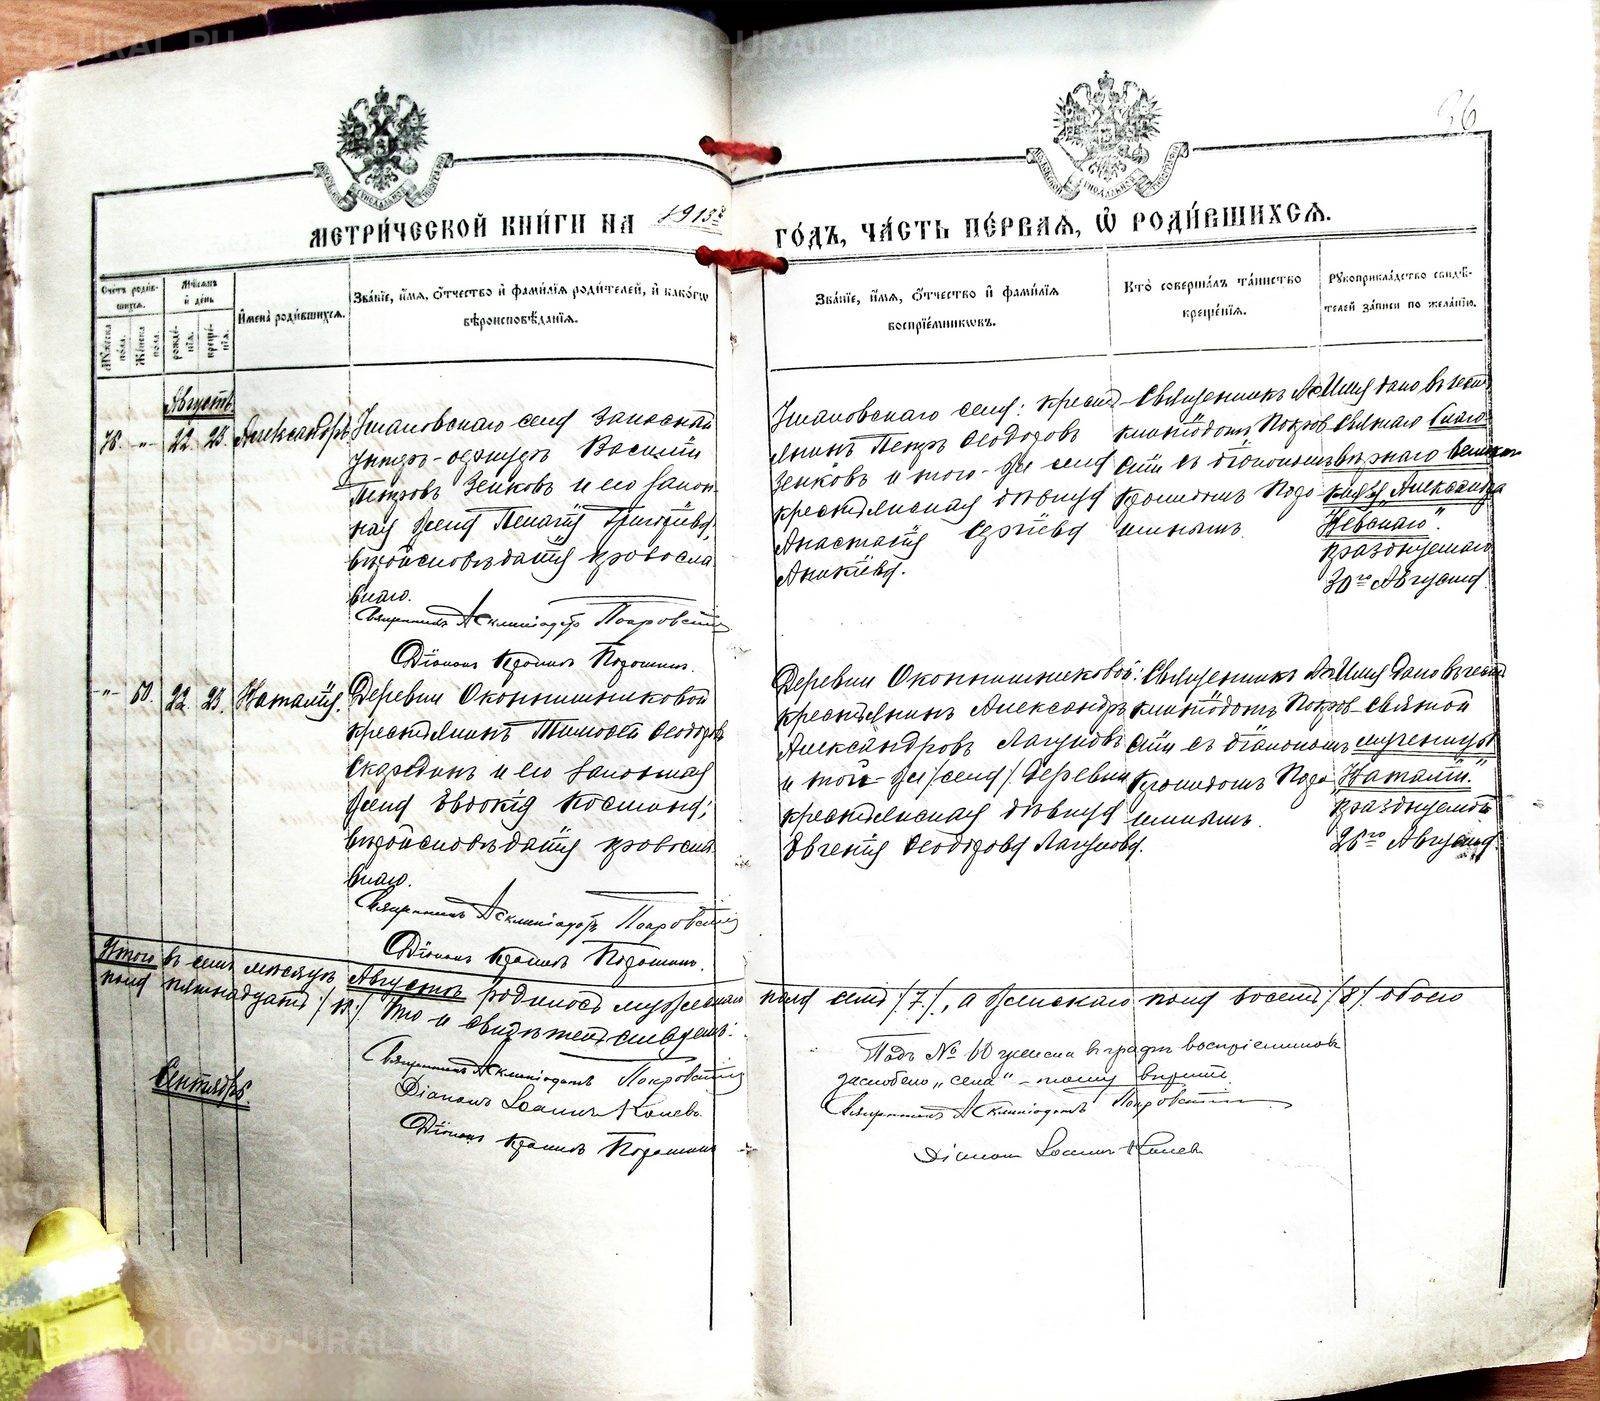 36
МЕТРИ́ЧЕСКОЙ КНИ́ГИ НА 1913й ГО́ДЪ, ЧА́СТЬ ПЕ́РВАЯ, Ѡ РОДИ́ВШИХСЯ.
Сче́тъ роди́вшихся.
Му́жска пола.
Же́нска пола.
Мѣ́сяцъ и день
рожде́нія.
креще́нія.
Имена̀ роди́вшихся.
Зва́ніе, и́мя, о́тчество и фами́лія роди́телей, и како́гѡ
вѣроисповѣ́данія.
Зва́ніе, и́мя, о́тчество и фами́лія
воспріе́мниковъ.
Кто̀ соверша́лъ та́инство
креще́нія.
Рꙋкоприкла́дство свидѣ́телей за́писи по жела́нію.
Августъ
78. -"- 22. 23. Александръ
село запасный
унтеръ-офицеръ Василій
Петровъ Зенковъ и его закон-
ная жена Пелагія Григоріева,
вѣроисповѣданія православнаго.
Священникъ Асклипіодотъ Покровскій
Діаконъ
села: кресть-
янинъ Петръ Ѳеодоровъ
Зенковъ и того-же села
крестьянская дѣвица
Анастасія Сергіева
Аникіева.
Священникъ Ас-
клипіодотъ Покров-
скій съ діакономъ
Имя дано въ честь
Святаго Благо-
вѣрнаго великаго
князя „Александра
Невскаго".
празднуемаго
30го Августа.
-"- 60. 22. 23. Наталія.
Деревни Оконишниковой
крестьянинъ Тимоѳей Ѳеодоровъ
и его законная
жена Евдокія Космина;
вѣроисповѣданія православнаго.
Священникъ Асклипіодотъ Покровскій
Діаконъ
Деревни Оконишниковой:
крестьянинъ Александръ
Александровъ Лагуновъ
и той-же /села/ деревни
крестьянская дѣвица
Евгенія Ѳеодорова Лагунова.
Священникъ Ас-
клипіодотъ Покров-
скій съ діакономъ
Имя дано въ честь
Святой
мученицы
„Наталіи."
празднуемой
26го Августа.
Итого въ семъ мѣсяцѣ Августѣ родилось мужескаго пола семь /7/, а женскаго пола восемь /8/. обоего
пола пятнадцать /15/. Что и свидѣтельствуемъ:
Священникъ Асклипіодотъ Покровскій
Діаконъ Іоаннъ
Діаконъ
Подъ № 60 женска въ графѣ воспріемниковъ
„села" -
Священникъ Асклипіодотъ Покровскій
Діаконъ Іоаннъ
Сентябрь.
METRIKI.GASO-URAL.RU